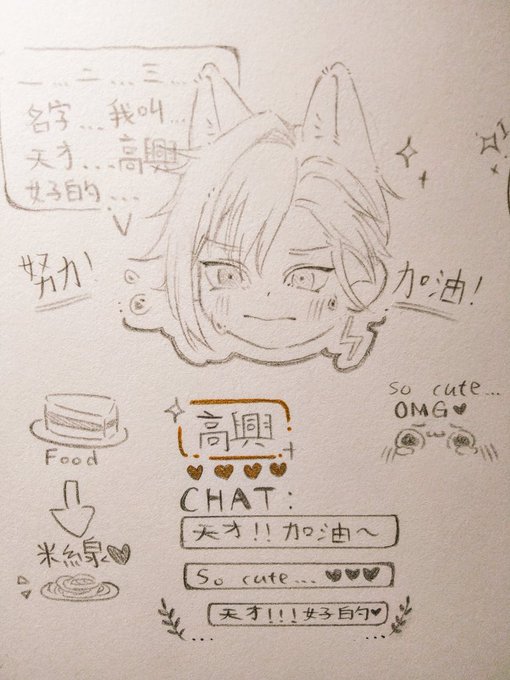 一 ... 二 ... 三 ...
名字 ... 我叫 ...
天才 ... 高興
好的 ...
努力
加油!
So cute...
OMG♥
Food
米線♥
高興
CHAT:
天才!! 加油~
So cute... ♥♥♥
天才!!! 好的♥